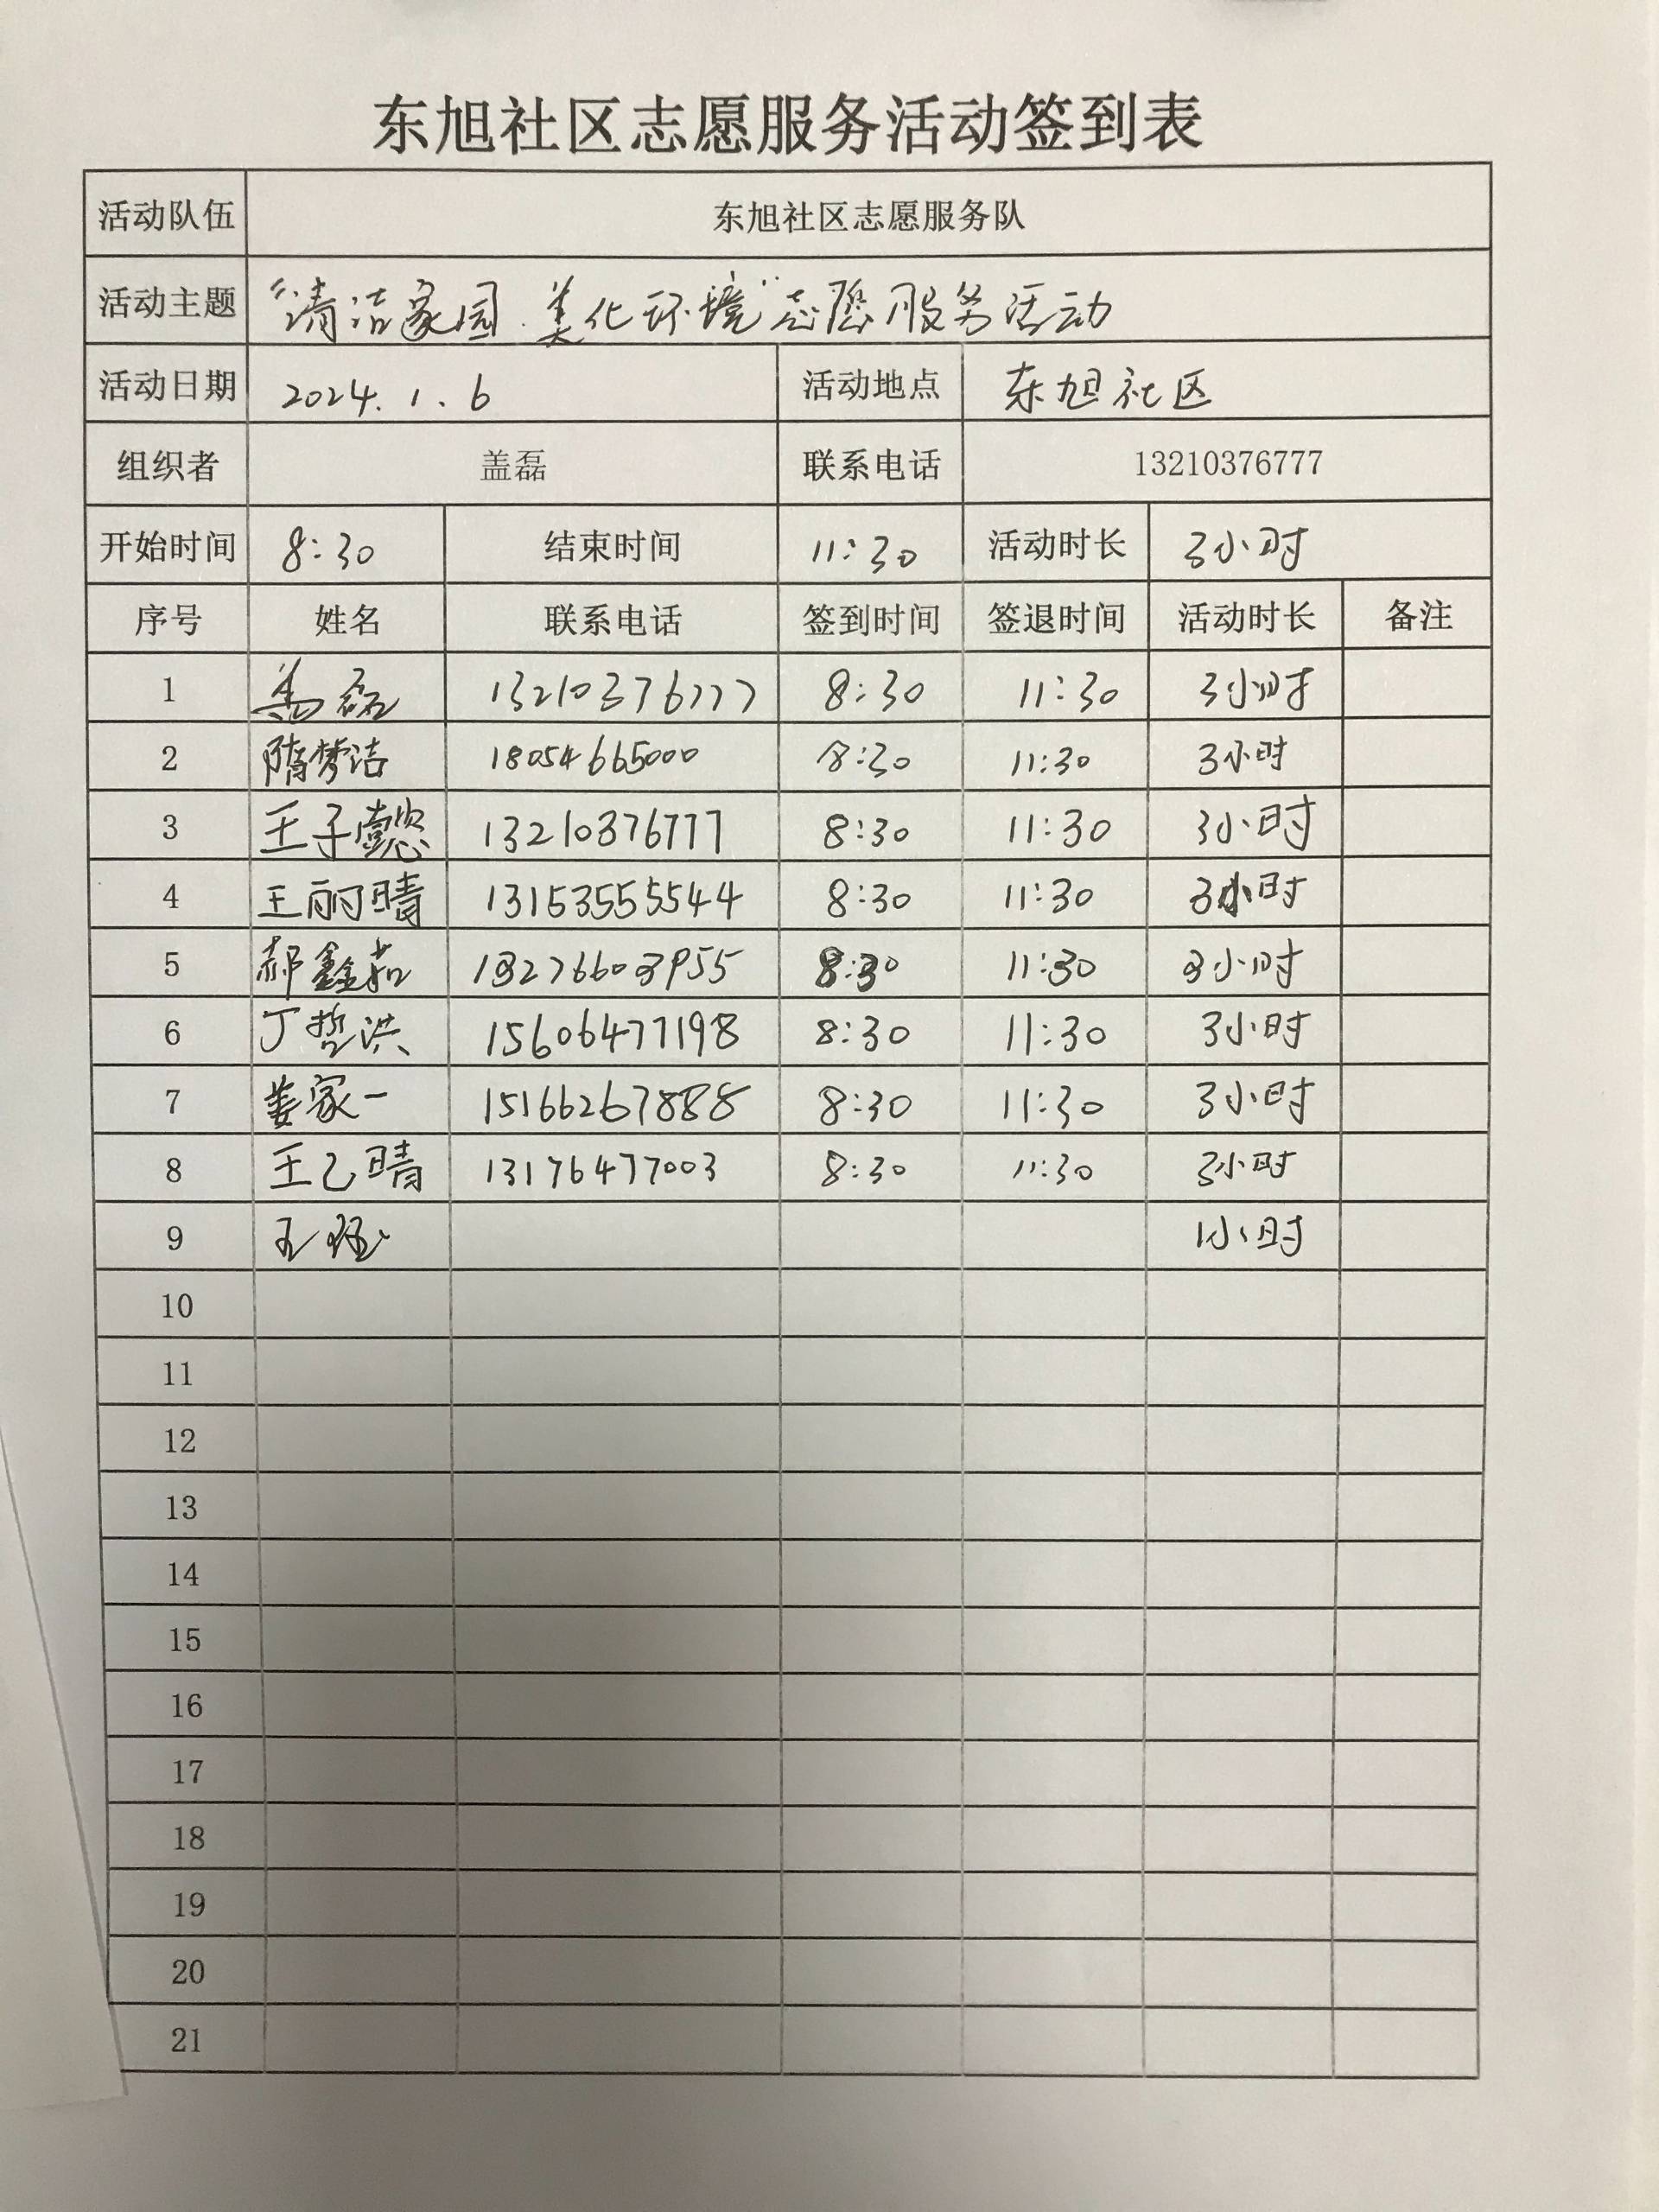 东旭社区志愿服务活动签到表
活动队伍 东旭社区志愿服务队
活动主题 “清洁家园.美化环境”志愿服务活动
活动日期 2024.1.6 活动地点 东旭社区
组织者 盖磊 联系电话 13210376777
开始时间 8:30 结束时间 11:30 活动时长 3小时
序号 姓名 联系电话 签到时间 签退时间 活动时长 备注
1 盖磊 13210376777 8:30 11:30 3小时
2 隋梦洁 18054665000 8:30 11:30 3小时
3 王子懿 13210376777 8:30 11:30 3小时
4 王丽晴 13153555544 8:30 11:30 3小时
5 郝鑫茹 13276603955 8:30 11:30 3小时
6 丁哲洪 15606477198 8:30 11:30 3小时
7 姜家一 15166267888 8:30 11:30 3小时
8 王乙晴 13176477003 8:30 11:30 3小时
9 王 1小时
10
11
12
13
14
15
16
17
18
19
20
21